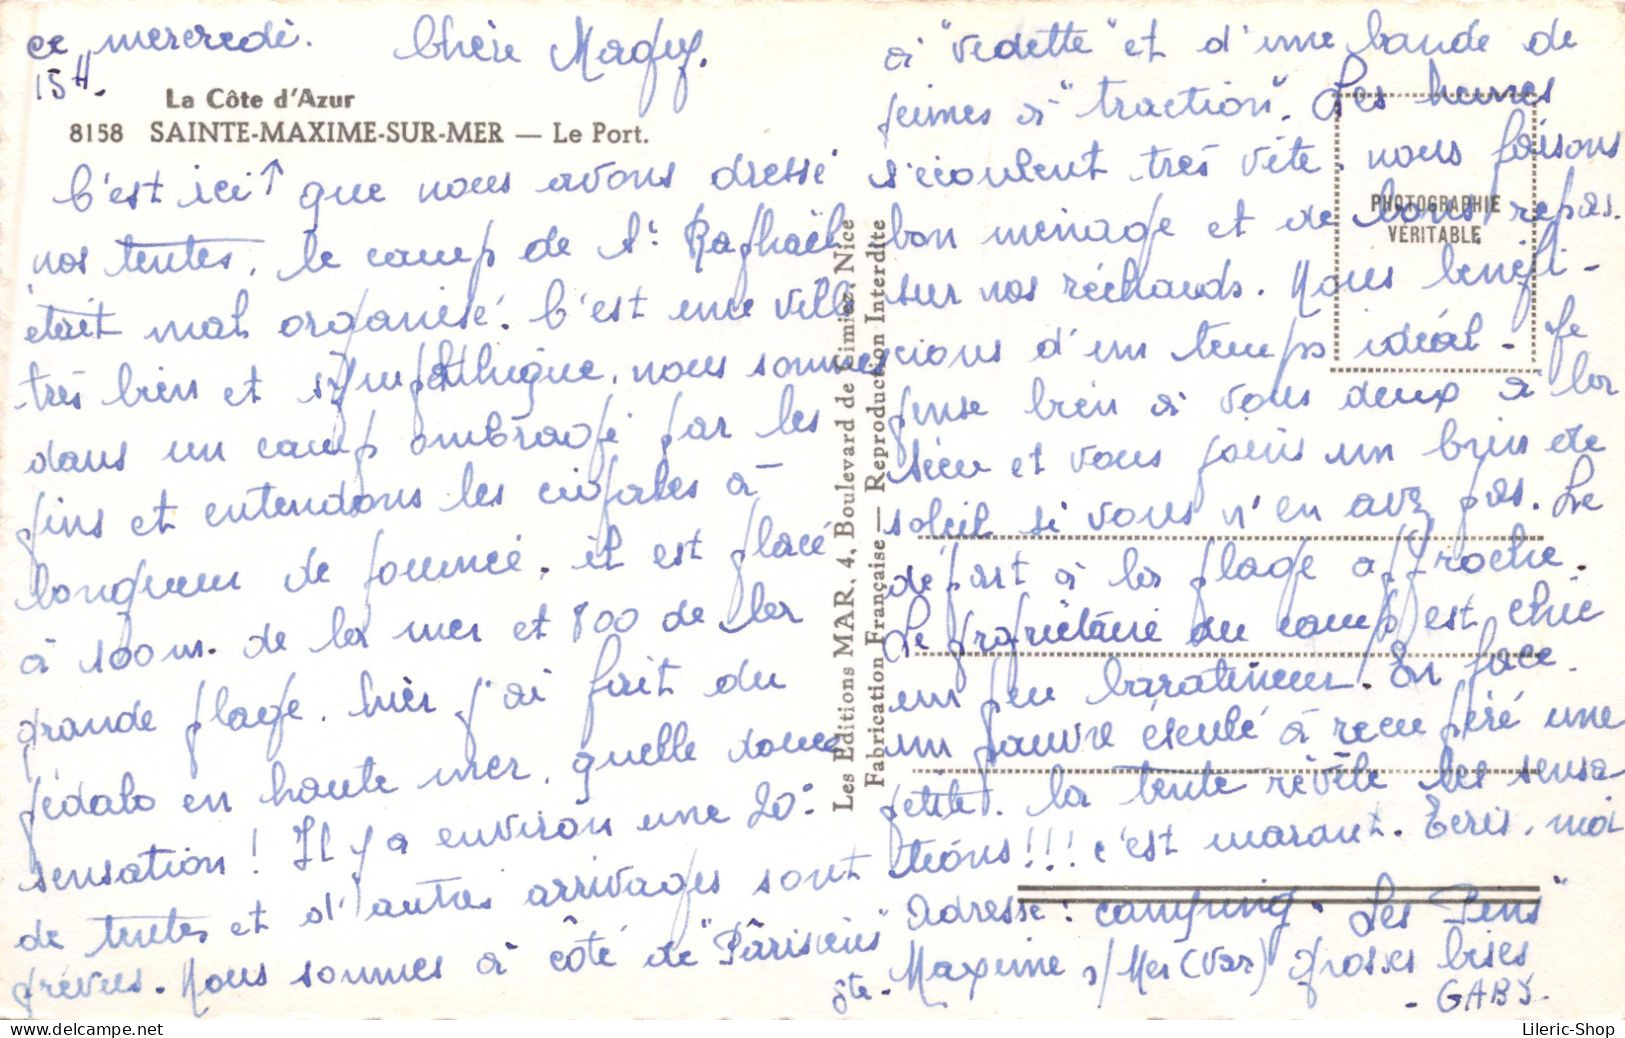 ce mercredi. Chère Maguy.
15H.
La Côte d'Azur
8158 SAINTE-MAXIME-SUR-MER — Le Port.
C'est ici ↑ que nous avons dressé
nos tentes, le camp de St Raphaël
était mal organisé. C'est une ville
très bien et sympathique, nous sommes
dans un camp ombragé par les
pins et entendons les cigales à
longueur de journée, il est placé
à 500m. de la mer et 800 de la
grande plage, hier j'ai fait du
pédalo en haute mer, quelle douce
sensation ! Il y a environ une 20e
de tentes et d'autres arrivages sont
prévus. Nous sommes à côté de "Pârisiens"
Les Editions MAR, 4, Boulevard de Cimiez, Nice
Fabrication Française — Reproduction Interdite
PHOTOGRAPHIE
VÉRITABLE
à "vedette" et d'une bande de
jeunes à "traction". Les heures
s'écoulent très vite, nous faisons
bon ménage et de bons repas
sur nos réchauds. Nous bénéfi-
cions d'un temps idéal - Je
pense bien à vous deux à la
Sécu et vous joins un brin de
soleil si vous n'en avez pas. Le
départ à la plage approche.
Le propriétaire du camp est chic
un peu baratineur. En face
un pauvre esseulé à récupéré une
petite. la tente révèle les sensa-
tions!!! c'est marant. Ecris, moi
Adresse : camping. Les Pins"
Ste-Maxime s/Mer (Var) grosses bises
- GABY.
Lileric-Shop